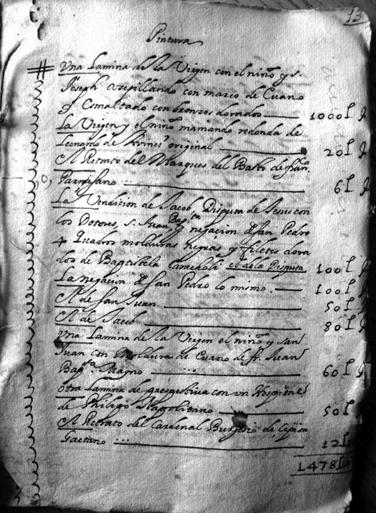 13
Pintura
# Una Lamina de la Virgen con el niño y S.
Joseph acepillando con marco de Euano
y Esmaltado con bronces dorados 1000 l
La Virgen y el niño mamando redonda de
Leonardo de original 20 l
El Retrato del Marques del Basto de fran.co
Parmesano 6 l
La Vendicion de Jacob, Disputa de Jesus con
los Dotores, S. Juan Bap.ta y negacion de San Pedro
4 Quadros molduras negras y filetes dora
dos de Baptistelo es de la Disputa 100 l
La negacion de San Pedro lo mismo 100 l
El de San Juan 50 l
El de Jacob 80 l
Una Lamina de la Virgen el niño y San
Juan con Moldura de Euano de fr. Juan
Bap.ta Magno 60 l
otra Lamina de con un
de Philipo Napolitano 50 l
El Retrato del Cardenal Burgesio de Cipion
Gaetano 12 l
1478 l